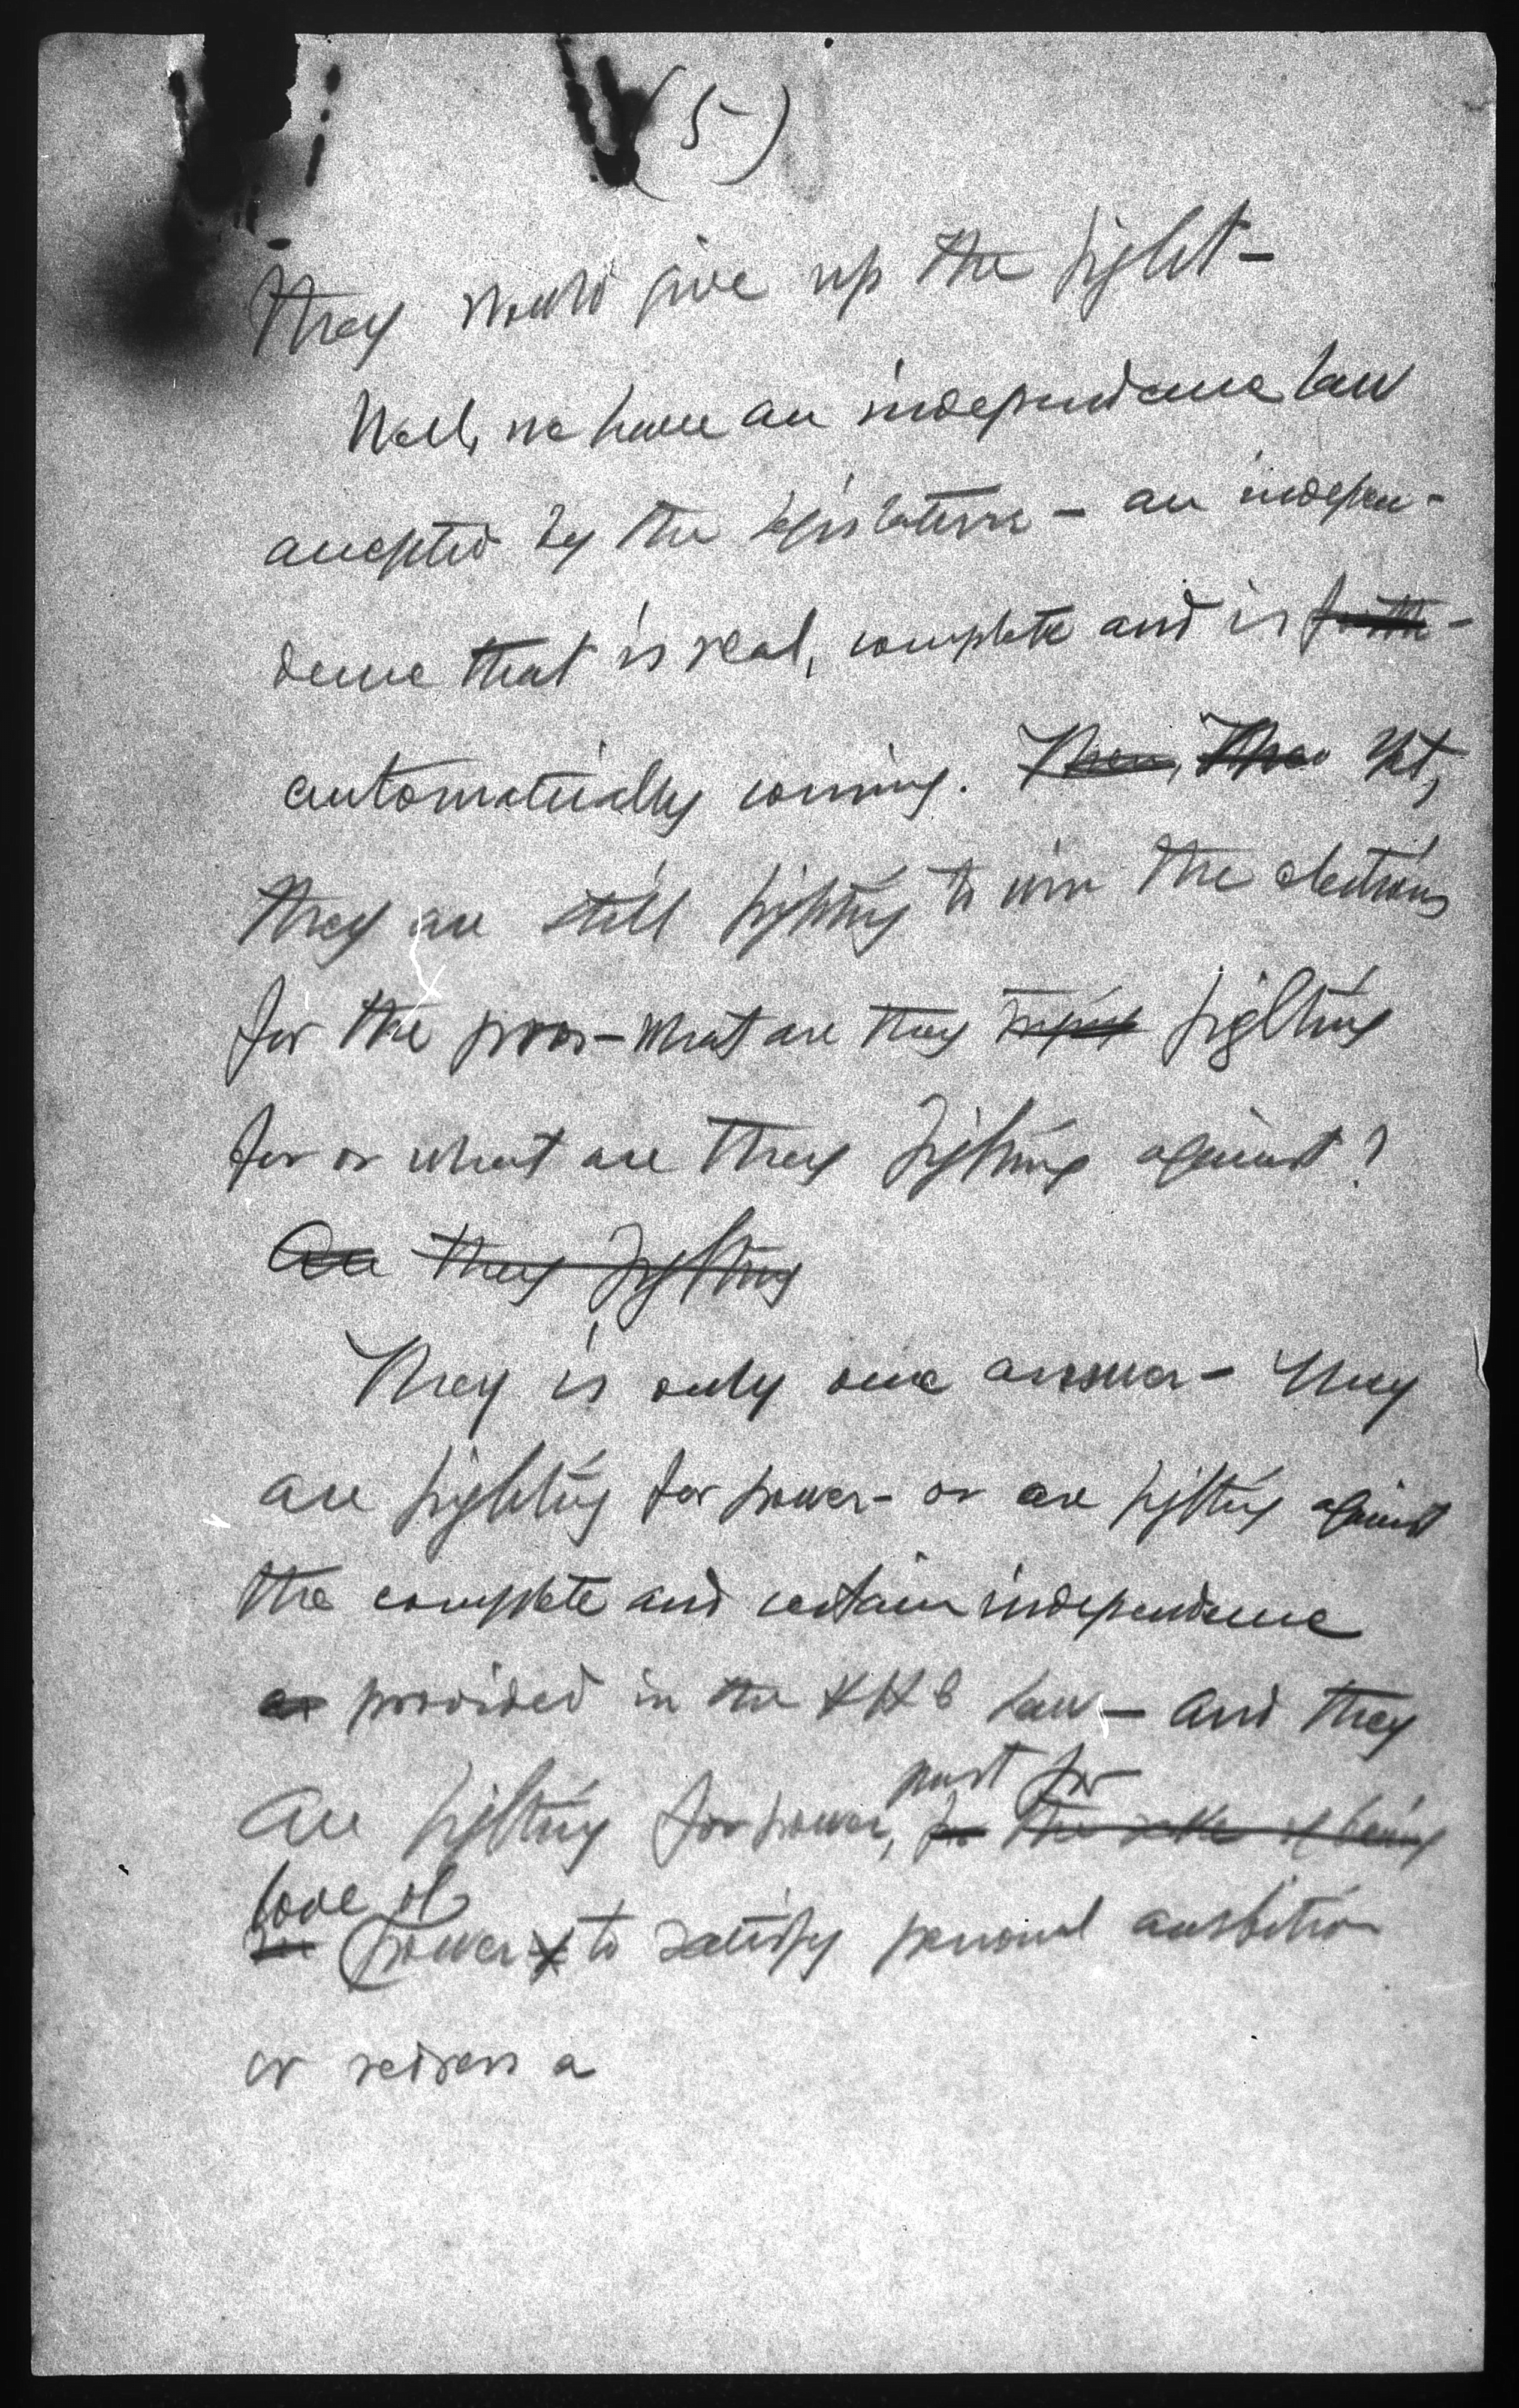 (5)
they would give up the fight –
Well, we have an independence law
accepted by the legislature – an indepen-
dence that is real, complete and is forth-
automatically coming. Then, Then Yet,
they are still fighting to win the elections
for the pros – What are they fighting
for or what are they fighting against?
Are they fighting
They is only one answer – They
are fighting for power – or are fighting against
the complete and certain independence
as provided in the law – and they
just for
are fighting for power, for the sake of being
love of
in power to satisfy personal ambition
or redress a